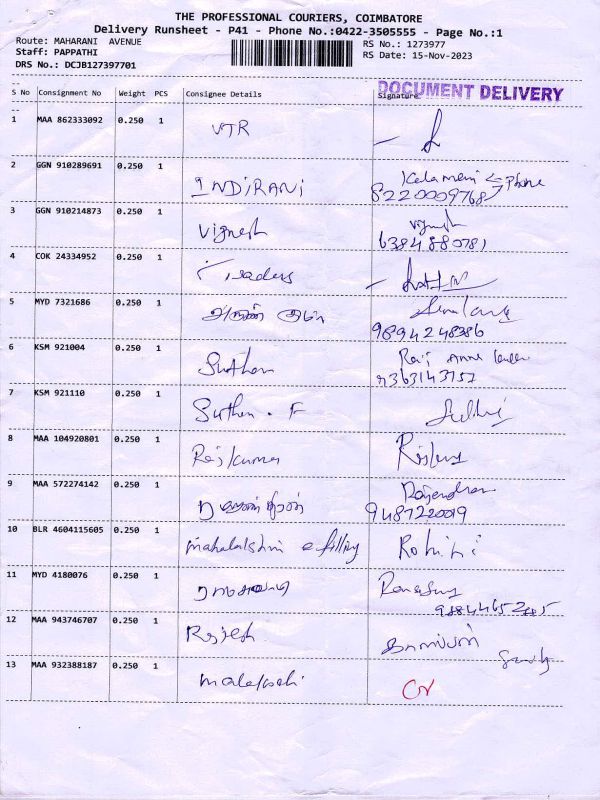 THE PROFESSIONAL COURIERS, COIMBATORE
Delivery Runsheet - P41 - Phone No.:0422-3505555 - Page No.:1
Route: MAHARANI AVENUE
Staff: PAPPATHI
DRS No.: DCJB127397701
RS No.: 1273977
RS Date: 15-Nov-2023
DOCUMENT DELIVERY
S No Consignment No Weight PCS Consignee Details Signature
1 MAA 862333092 0.250 1 VTR
2 GGN 910289691 0.250 1 INDIRANI Phone
8220009768
3 GGN 910214873 0.250 1 Vignesh Vignesh
6384880781
4 COK 24334952 0.250 1 Traders
5 MYD 7321686 0.250 1 அருண்
9894248386
6 KSM 921004 0.250 1 Suthan
9363143757
7 KSM 921110 0.250 1 Suthan . F
8 MAA 104920801 0.250 1 Rajkumar
9 MAA 572274142 0.250 1 Rajendran
9487220019
10 BLR 4604115605 0.250 1 mahalakshmi e filling Rohini
11 MYD 4180076 0.250 1
12 MAA 943746707 0.250 1 Rajesh
13 MAA 932388187 0.250 1